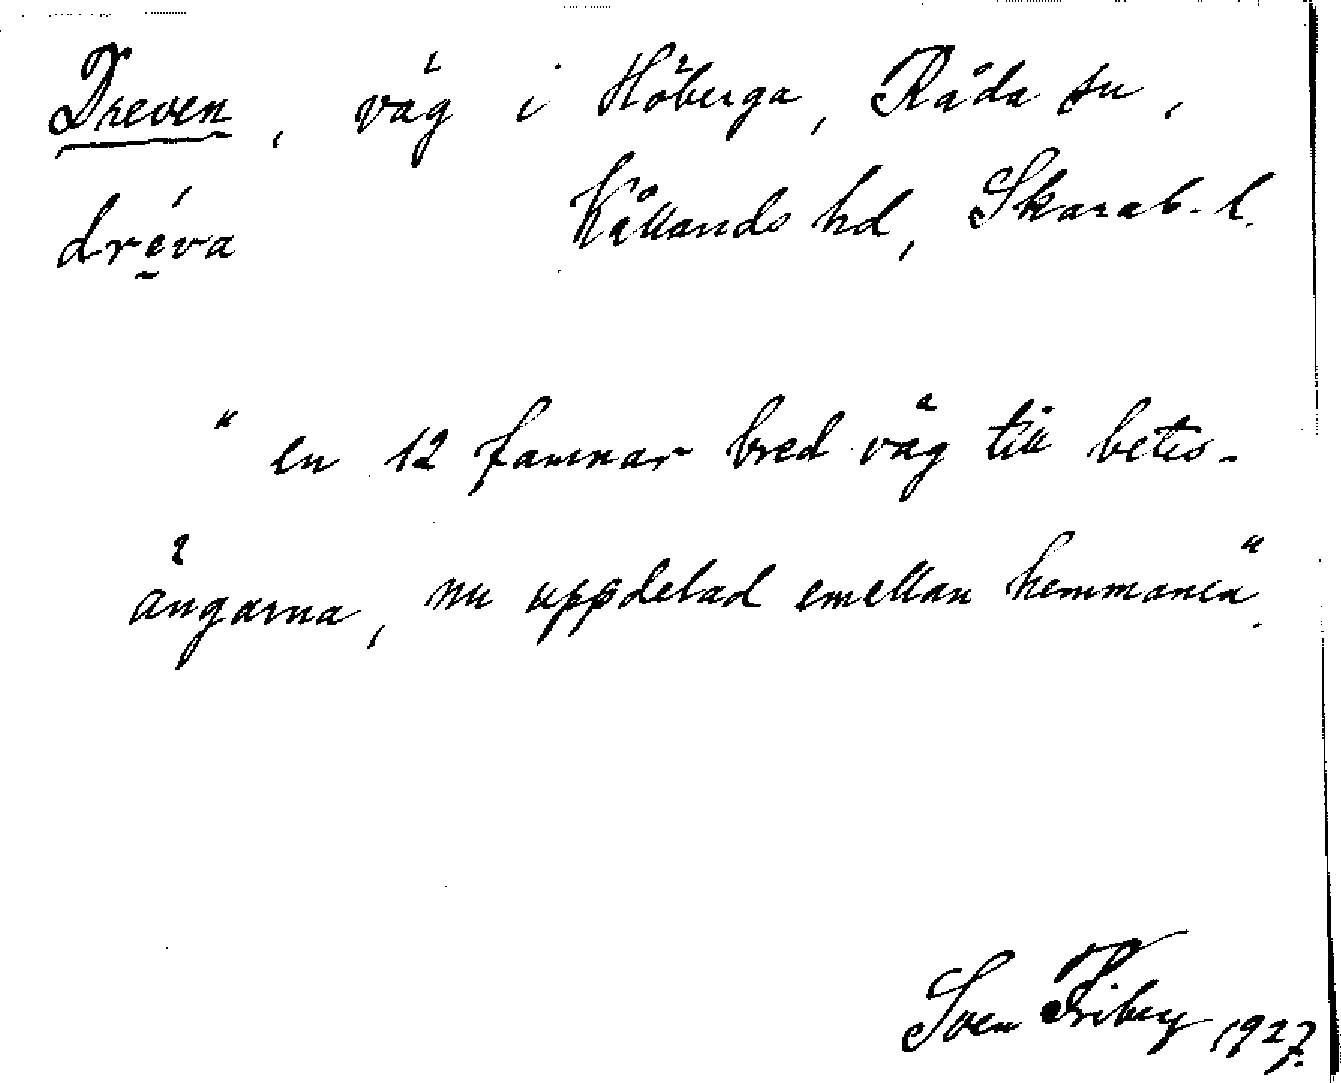 Dreven, väg i Höberga, Råda sn,
dréva Kållands hd, Skarab. l.
"en 12 famnar bred väg till betes-
ängarna, nu uppdelad emellan hemmanen".
Sven Friberg 1927.